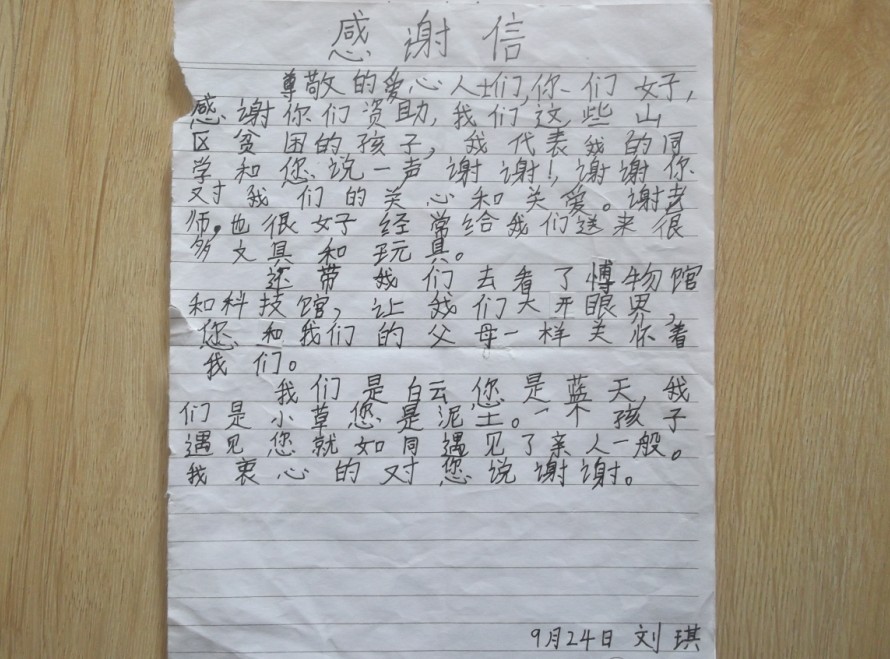 感谢信
尊敬的爱心人士们,你们好,
感谢你们资助,我们这些山
区贫困的孩子,我代表我的同
学和您说一声谢谢!,谢谢你
对我们的关心和关爱。谢老
师。也很好经常给我们送来很
多文具和玩具。
还带我们去看了博物馆
和科技馆,让我们大开眼界,
您和我们的父母一样关你着
我们。
我们是白云您是蓝天,我
们是小草您是泥土。一个孩子
遇见您就如同遇见了亲人一般。
我衷心的对您说谢谢。
9月24日 刘琪